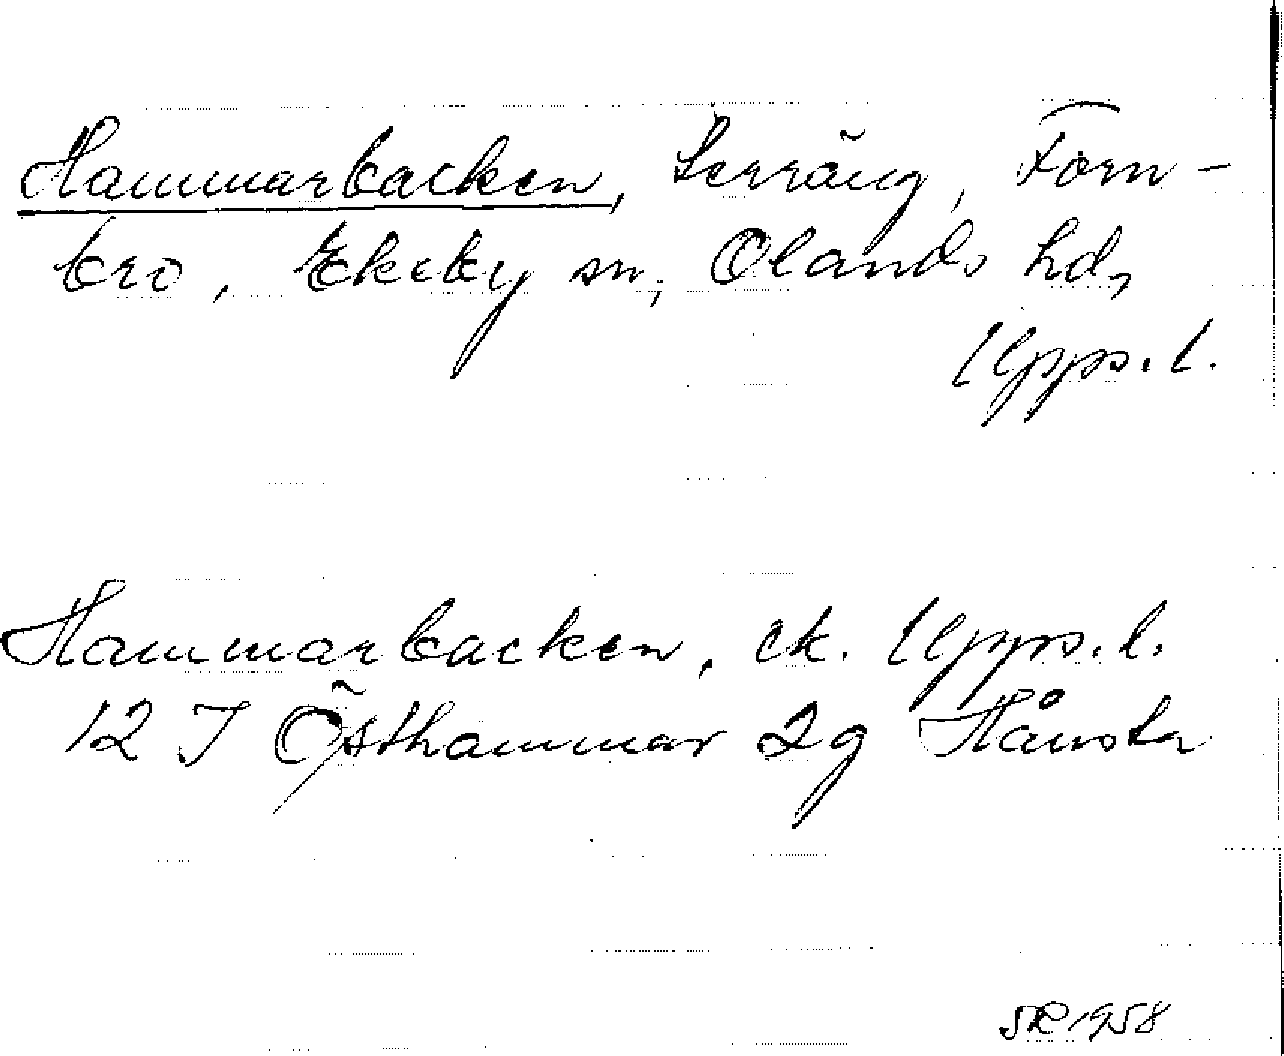 Hammarbacken, terräng, Forn-
bro, Ekeby sn, Olands hd,
Upps. l.
Hammarbacken, ek. Upps. l.
12 I Östhammar 2g Hånsta
1958